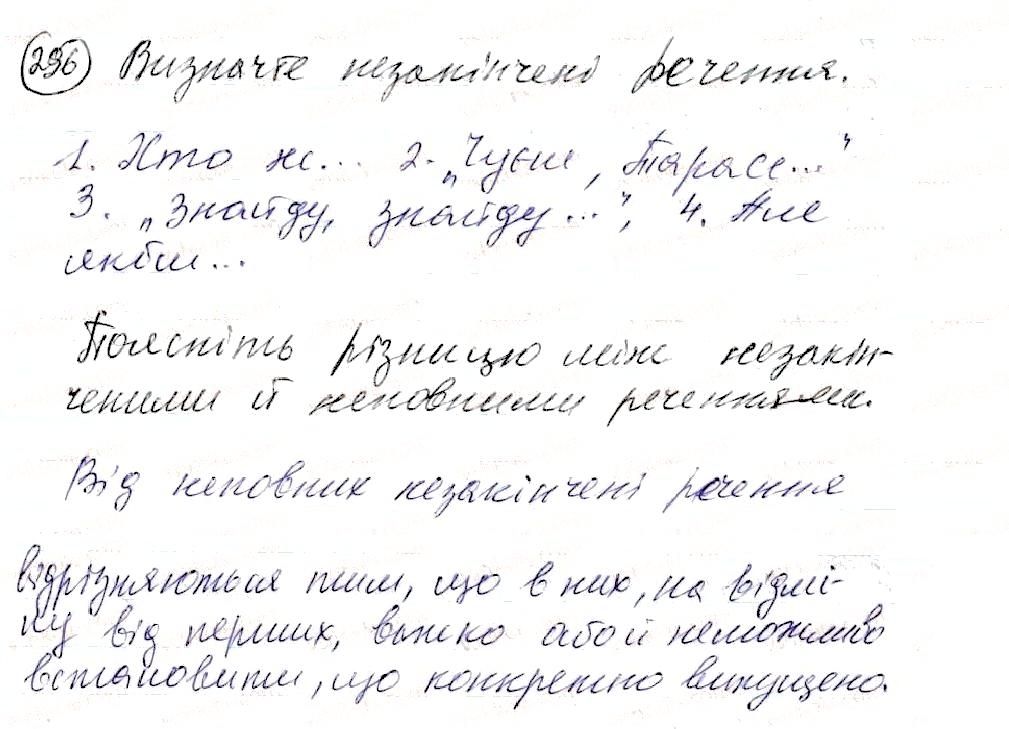 296 Визначте незакінчені речення.
1. Хто ж... 2. „Чуєш, Тарасе..."
3. „Знайду, знайду...", 4. Але
якби...
Поясніть різницю між незакін-
ченими й неповними реченнями.
Від неповних незакінчені речення
відрізняються тим, що в них, на відмі-
ну від перших, важко або й неможливо
встановити, що конкретно випущено.